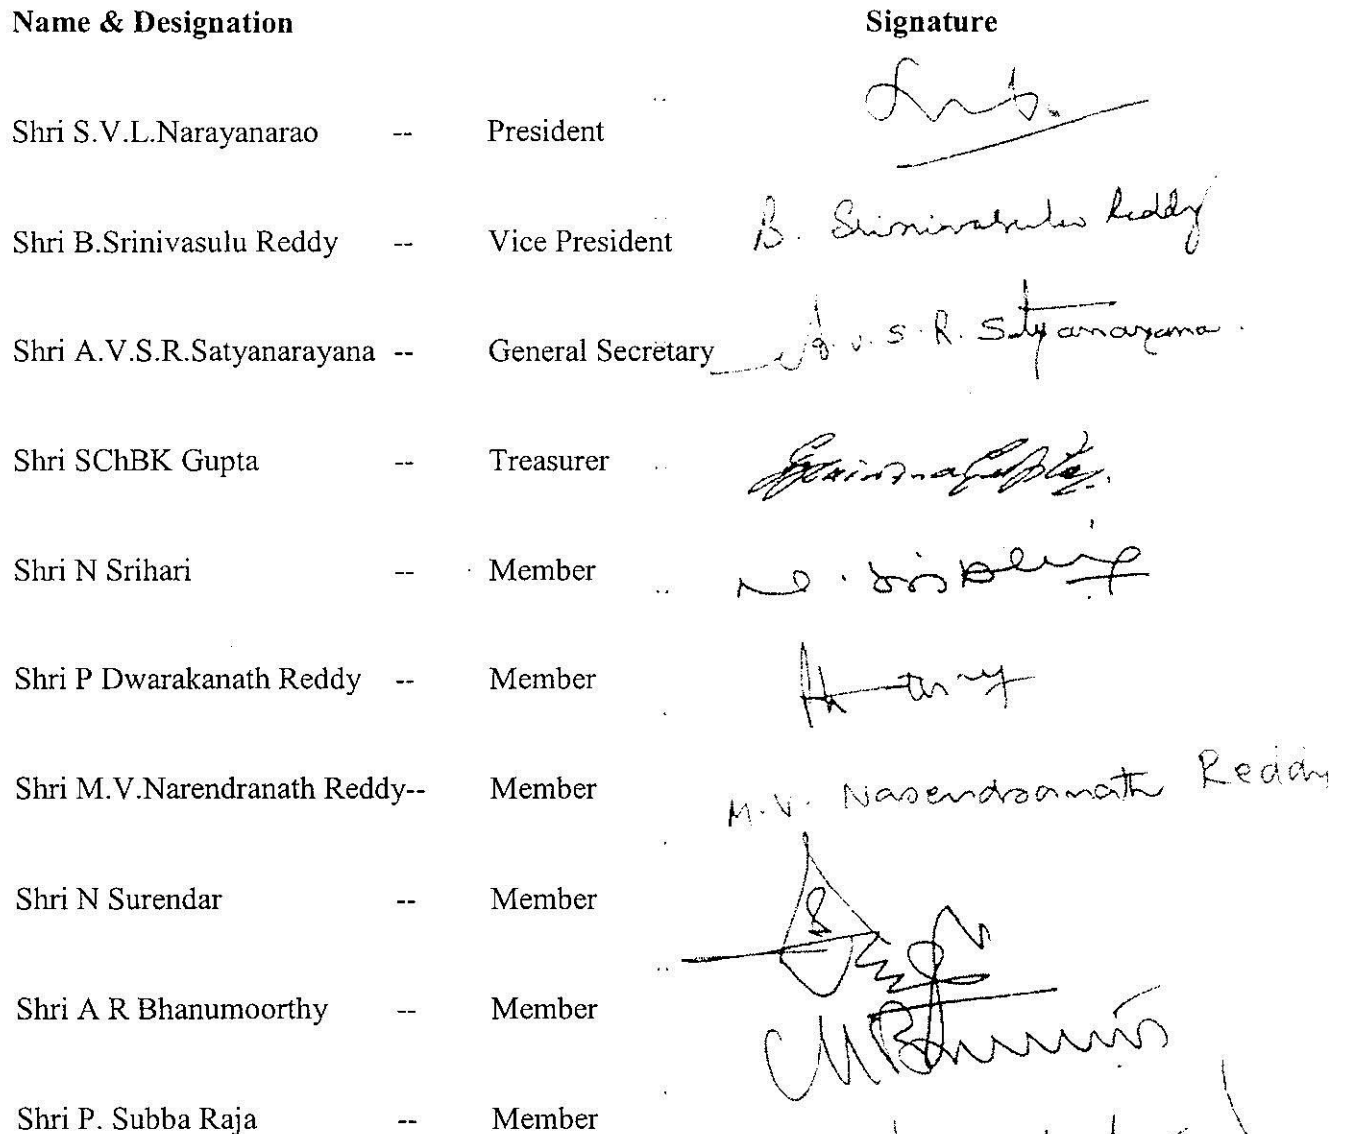 Name & Designation Signature
Shri S.V.L.Narayanarao -- President
Shri B.Srinivasulu Reddy -- Vice President B. Srinivasulu Reddy
Shri A.V.S.R.Satyanarayana -- General Secretary A.V.S.R. Satyanarayana
Shri SChBK Gupta -- Treasurer
Shri N Srihari -- Member
Shri P Dwarakanath Reddy -- Member
Shri M.V.Narendranath Reddy-- Member M.V. Narendranath Reddy
Shri N Surendar -- Member
Shri A R Bhanumoorthy -- Member
Shri P. Subba Raja -- Member